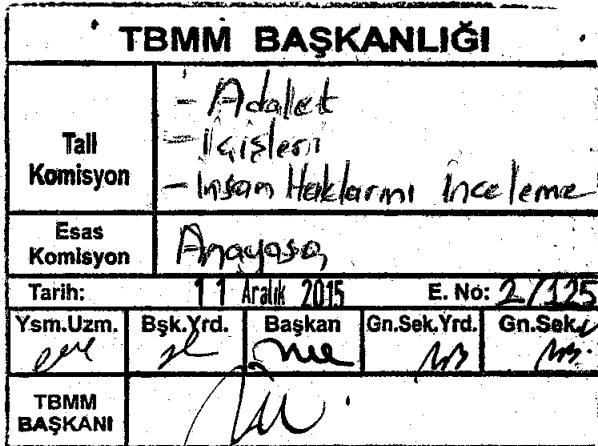 TBMM BAŞKANLIĞI
Tali Komisyon
- Adalet
- İçişleri
- İnsan Haklarını İnceleme
Esas Komisyon
Anayasa
Tarih: 11 Aralık 2015 E. No: 2/125
Ysm.Uzm. Bşk.Yrd. Başkan Gn.Sek.Yrd. Gn.Sek.
TBMM BAŞKANI